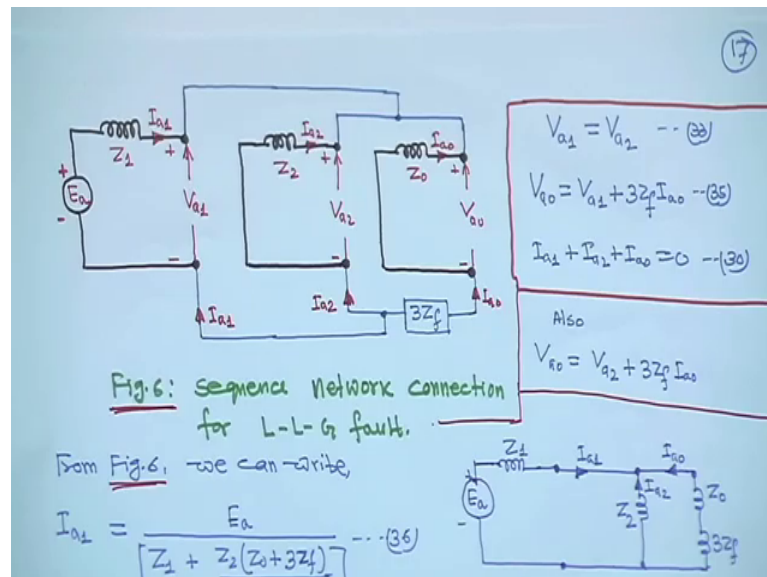 17
I_a1
Z_1
+
E_a
-
+
V_a1
-
I_a1
I_a2
Z_2
+
V_a2
-
I_a2
I_a0
Z_0
+
V_a0
-
3Z_f
I_a0
V_a1 = V_a2 --- (33)
V_a0 = V_a1 + 3Z_f I_a0 --- (35)
I_a1 + I_a2 + I_a0 = 0 --- (30)
Also
V_a0 = V_a2 + 3Z_f I_a0
Fig.6: sequence network connection
for L-L-G fault.
From Fig.6, we can write,
I_a1 = E_a / [Z_1 + Z_2(Z_0+3Z_f) ] --- (36)
Z_1
I_a1
I_a0
+
E_a
-
I_a2
Z_2
Z_0
3Z_f